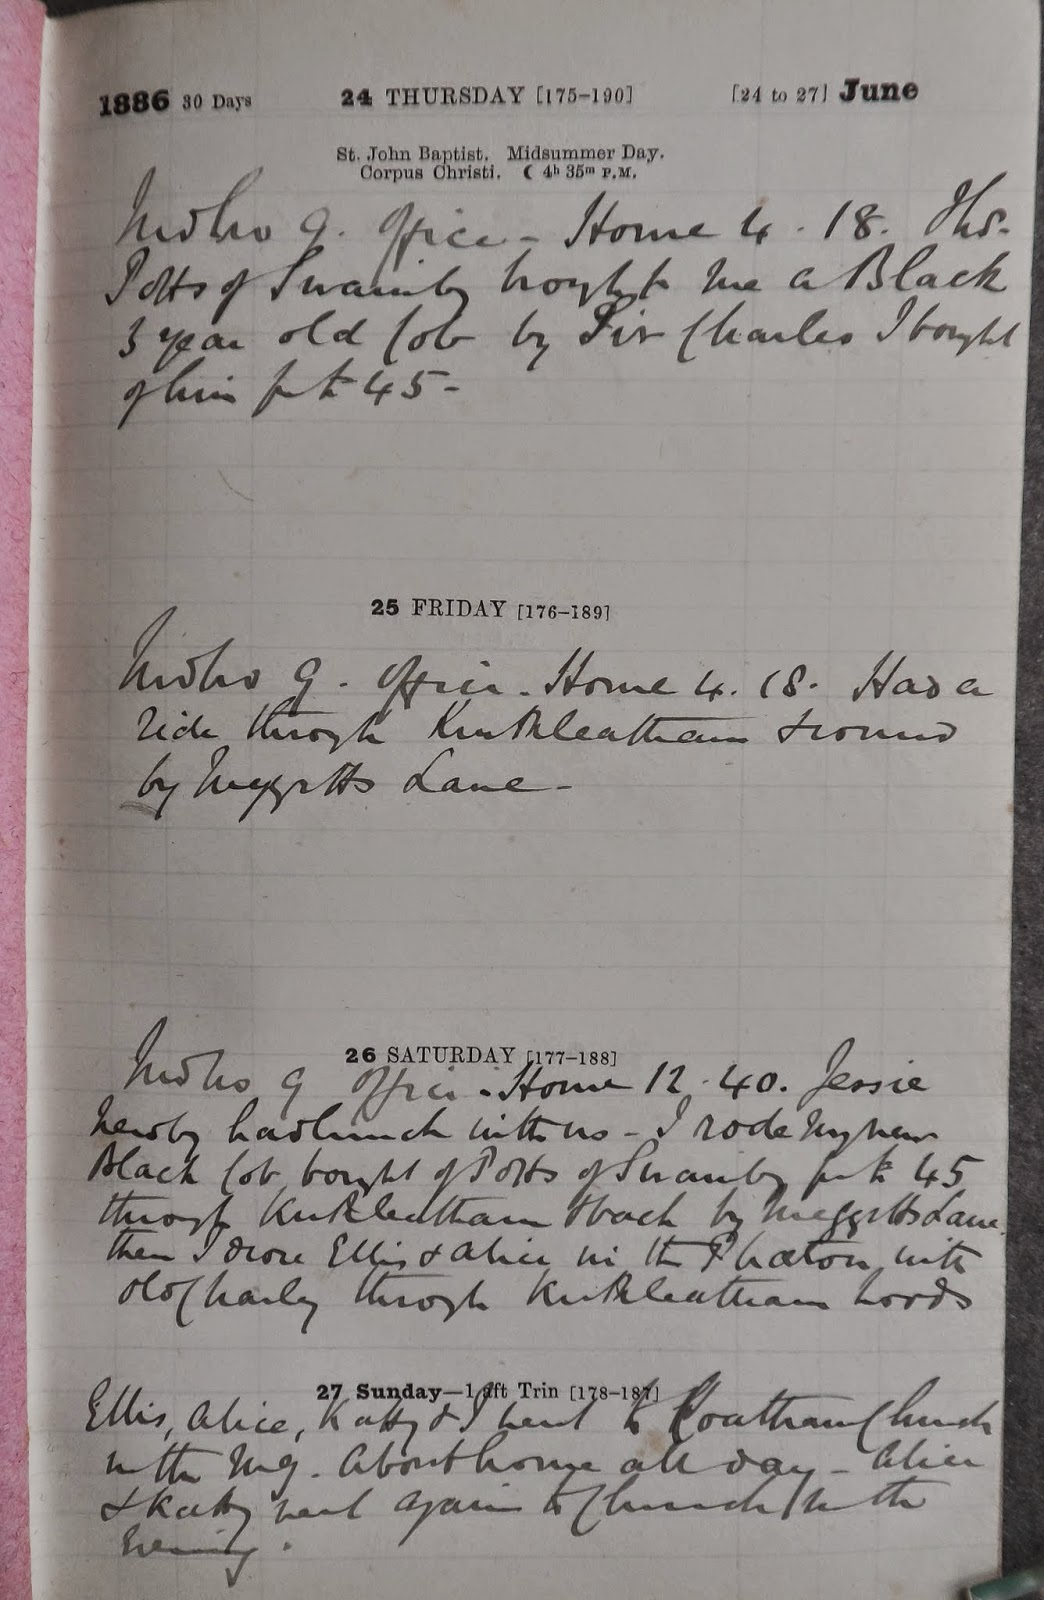 1886 30 Days 24 THURSDAY [175-190] [24 to 27] June
St. John Baptist. Midsummer Day.
Corpus Christi. ☾ 4h 35m P.M.
Midbro 9. Office - Home 4.18. Thos.
Potts of Swainby brought me a Black
3 year old Cob by Sir Charles I bought
of him for £45-
25 FRIDAY [176-189]
Midbro 9. Office. Home 4.18. Had a
ride through Kirkleatham & round
by Meggetts Lane -
26 SATURDAY [177-188]
Midbro 9 Office - Home 12.40. Jessie
Newby had lunch with us - I rode my new
Black Cob bought of Potts of Swainby for £45
through Kirkleatham & back by Meggitts Lane
then I drove Ellis & Alice in the Phaton with
old Charley through Kirkleatham Woods
27 Sunday-1 aft Trin [178-187]
Ellis, Alice, Katy & I went to Coatham Church
in the Mg. About home all day - Alice
& Katy went again to Church in the
Evening.